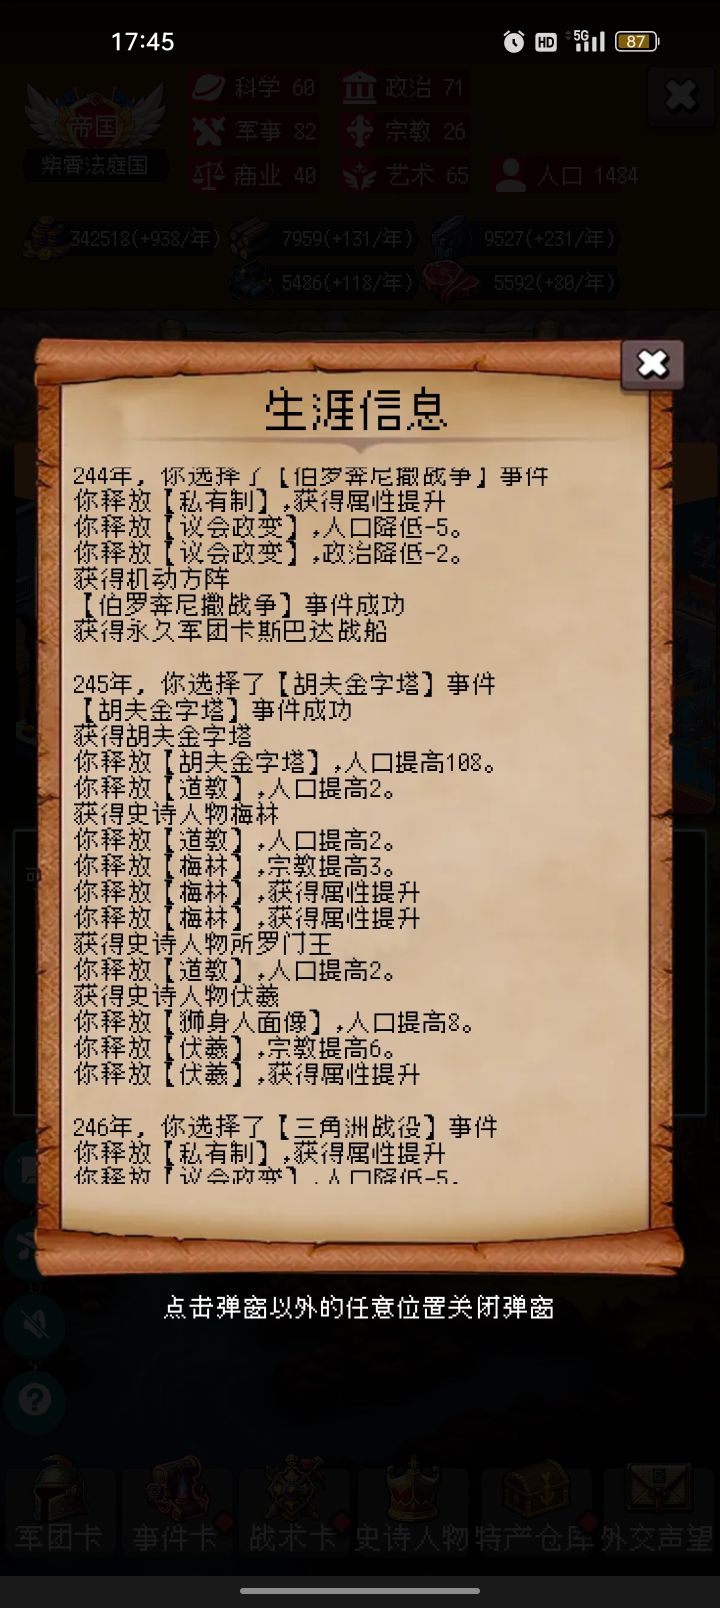 17:45
HD 5G 87
帝国
紫霄法庭国
科学 60
政治 71
军事 82
宗教 26
商业 40
艺术 65
人口 1484
342518(+938/年)
7959(+131/年)
9527(+231/年)
5486(+118/年)
5592(+80/年)
生涯信息
244年，你选择了【伯罗奔尼撒战争】事件
你释放【私有制】,获得属性提升
你释放【议会政变】,人口降低-5。
你释放【议会政变】,政治降低-2。
获得机动方阵
【伯罗奔尼撒战争】事件成功
获得永久军团卡斯巴达战船
245年，你选择了【胡夫金字塔】事件
【胡夫金字塔】事件成功
获得胡夫金字塔
你释放【胡夫金字塔】,人口提高108。
你释放【道教】,人口提高2。
获得史诗人物梅林
你释放【道教】,人口提高2。
你释放【梅林】,宗教提高3。
你释放【梅林】,获得属性提升
你释放【梅林】,获得属性提升
获得史诗人物所罗门王
你释放【道教】,人口提高2。
获得史诗人物伏羲
你释放【狮身人面像】,人口提高8。
你释放【伏羲】,宗教提高6。
你释放【伏羲】,获得属性提升
246年，你选择了【三角洲战役】事件
你释放【私有制】,获得属性提升
你释放【议会政变】,人口降低-5。
点击弹窗以外的任意位置关闭弹窗
军团卡
事件卡
战术卡
史诗人物
特产仓库
外交声望